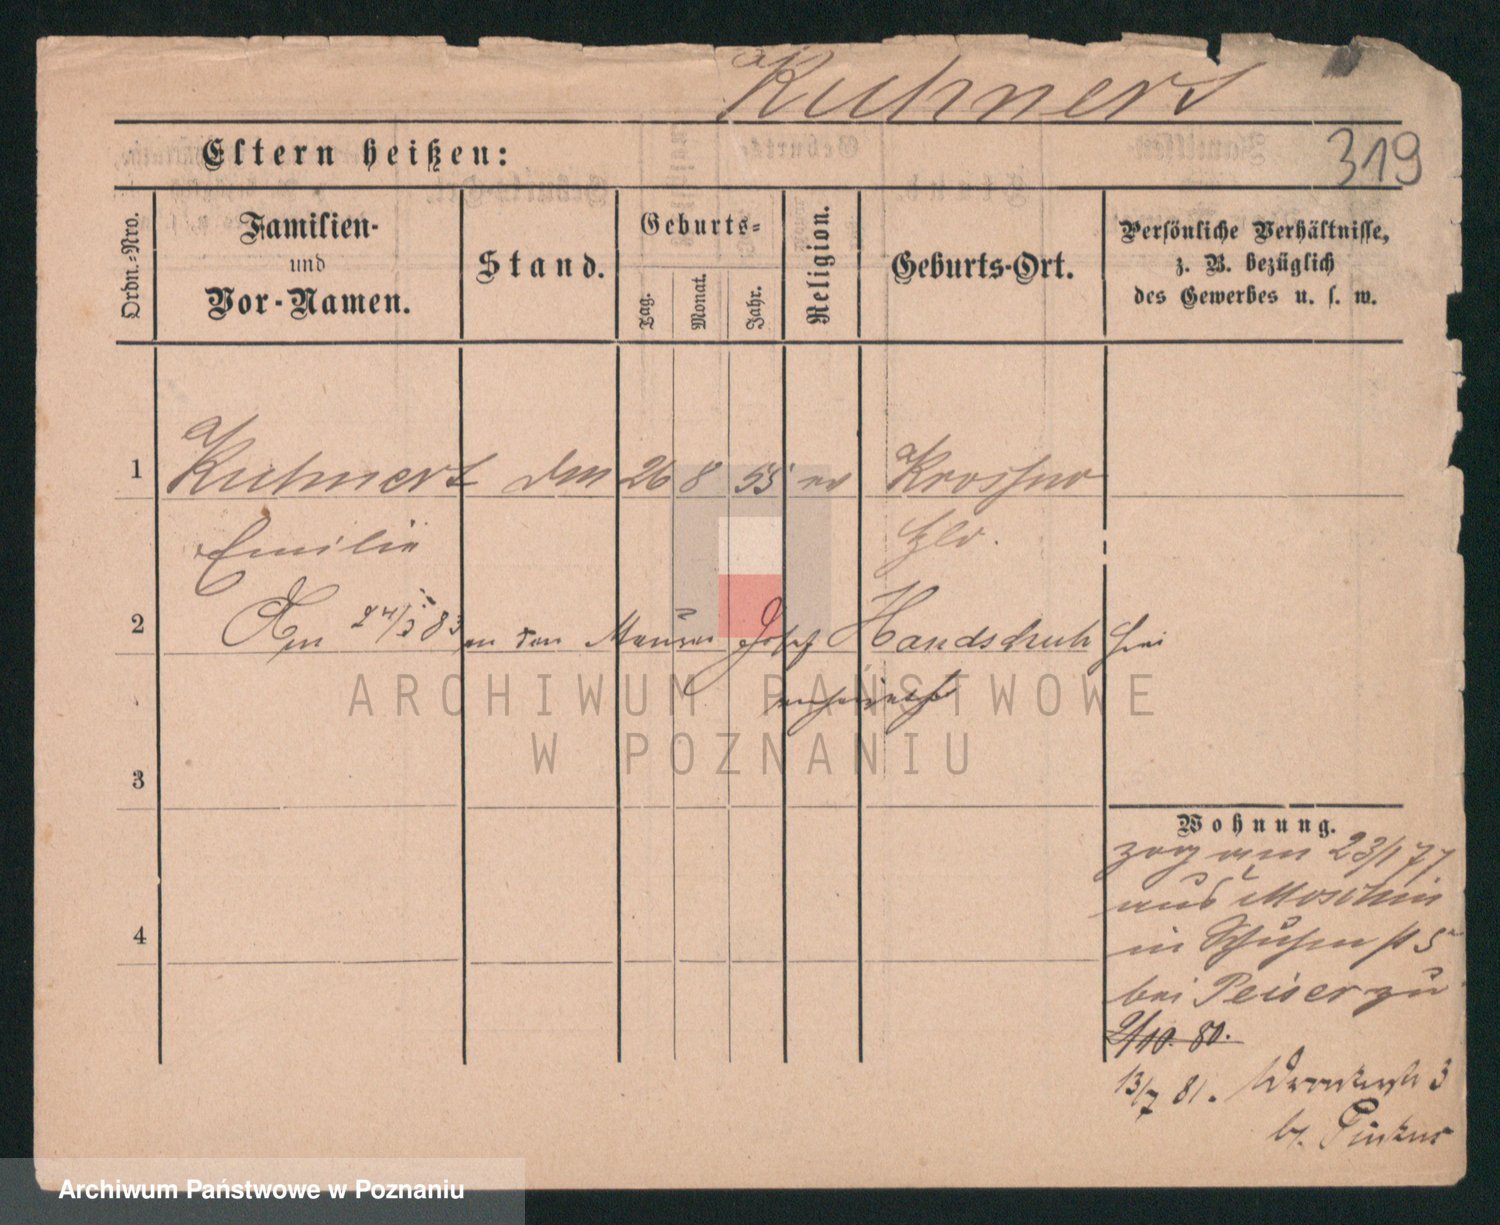 Kuhnert
319
Eltern heißen:
Ordn.-Nro.
Familien-
und
Vor-Namen.
Stand.
Geburts-
Tag.
Monat.
Jahr.
Religion.
Geburts-Ort.
Persönliche Verhältnisse,
z. B. bezüglich
des Gewerbes u. s. w.
1 Kuhnert 26 8 55 ev Krossno
Emilie
2 Am 24/5 83 an den Maurer Josef Handschuh hier
verheirathet
ARCHIWUM PAŃSTWOWE
W POZNANIU
3
4
Wohnung.
zog am 23/1 77
aus Moschin
in 5
bei Peiser zu
2/10. 80.
13/7 81. Wronkerstr 3
b. Pinkus
Archiwum Państwowe w Poznaniu